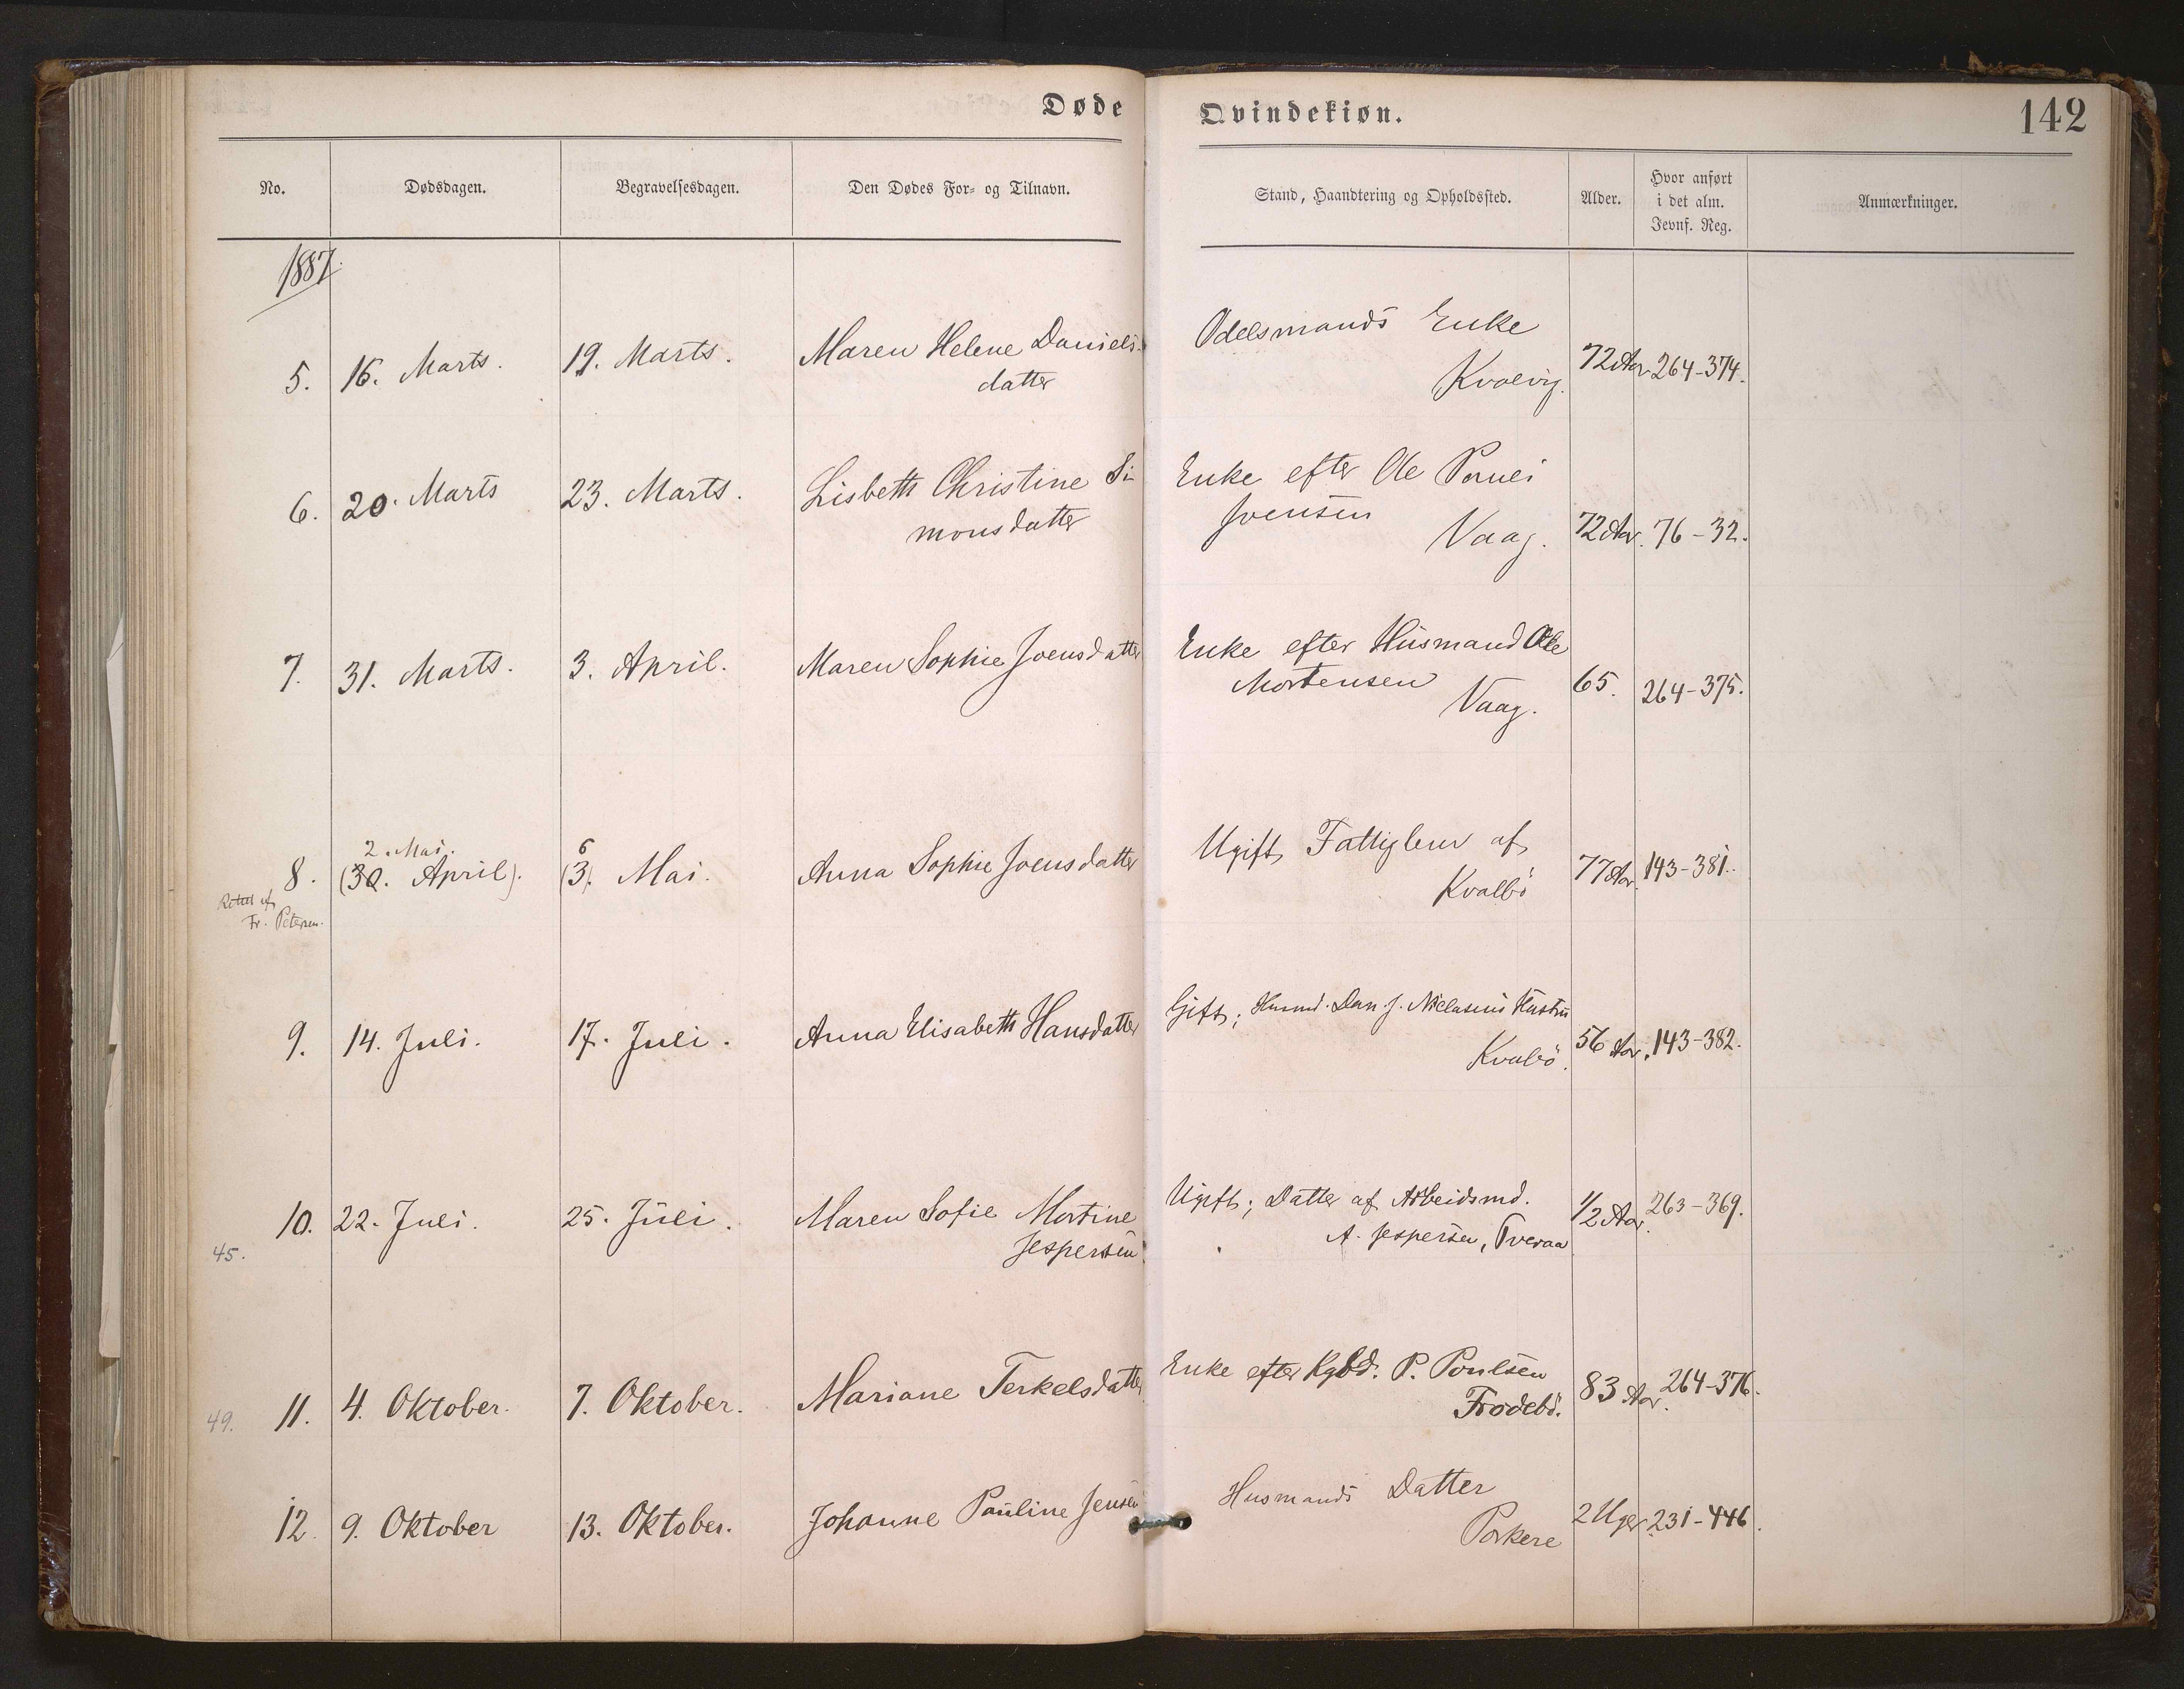 Døde Qvindekiøn. 142
No. Dødsdagen. Begravelsesdagen. Den Dødes For- og Tilnavn. Stand, Haandtering og Opholdssted. Alder. Hvor anført i det alm. Jevnf. Reg. Anmærkninger.
1887
5. 16. Marts. 19. Marts. Maren Helene Daniels- Odelsmands Enke
datter Kvalvig. 72 Aar. 264-374.
6. 20. Marts 23. Marts. Lisbeth Christine Si- Enke efter Ole
monsdatter Joensen Vaag. 72 Aar. 76-32.
7. 31. Marts. 3. April. Maren Sophie Joensdatter Enke efter Husmand Ole
Mortensen Vaag. 65. 264-375.
2. Mai. 6
8. (30. April). (3). Mai. Anna Sophie Joensdatter Ugift Fattiglem af
Kvalbö 77 Aar. 143-381.
Rettet af
Fr. Petersen.
9. 14. Juli. 17. Juli. Anna Elisabeth Hansdatter Gift; Husmd. Dan. J. Niclasens Hustru
Kvalbö. 56 Aar. 143-382.
10. 22. Juli. 25. Juli. Maren Sofie Mortine Ugift; Datter af Arbeidsmd. 1/2 Aar. 263-369.
45. Jespersen A. Jespersen, Tveraa
49. 11. 4. Oktober. 7. Oktober. Mariane Terkelsdatter Enke efter Kgbd. P. Poulsen
Frodebö. 83 Aar. 264-376.
12. 9. Oktober 13. Oktober. Johanne Pauline Jensen Husmands Datter
Porkere 2 Uger 231-446.